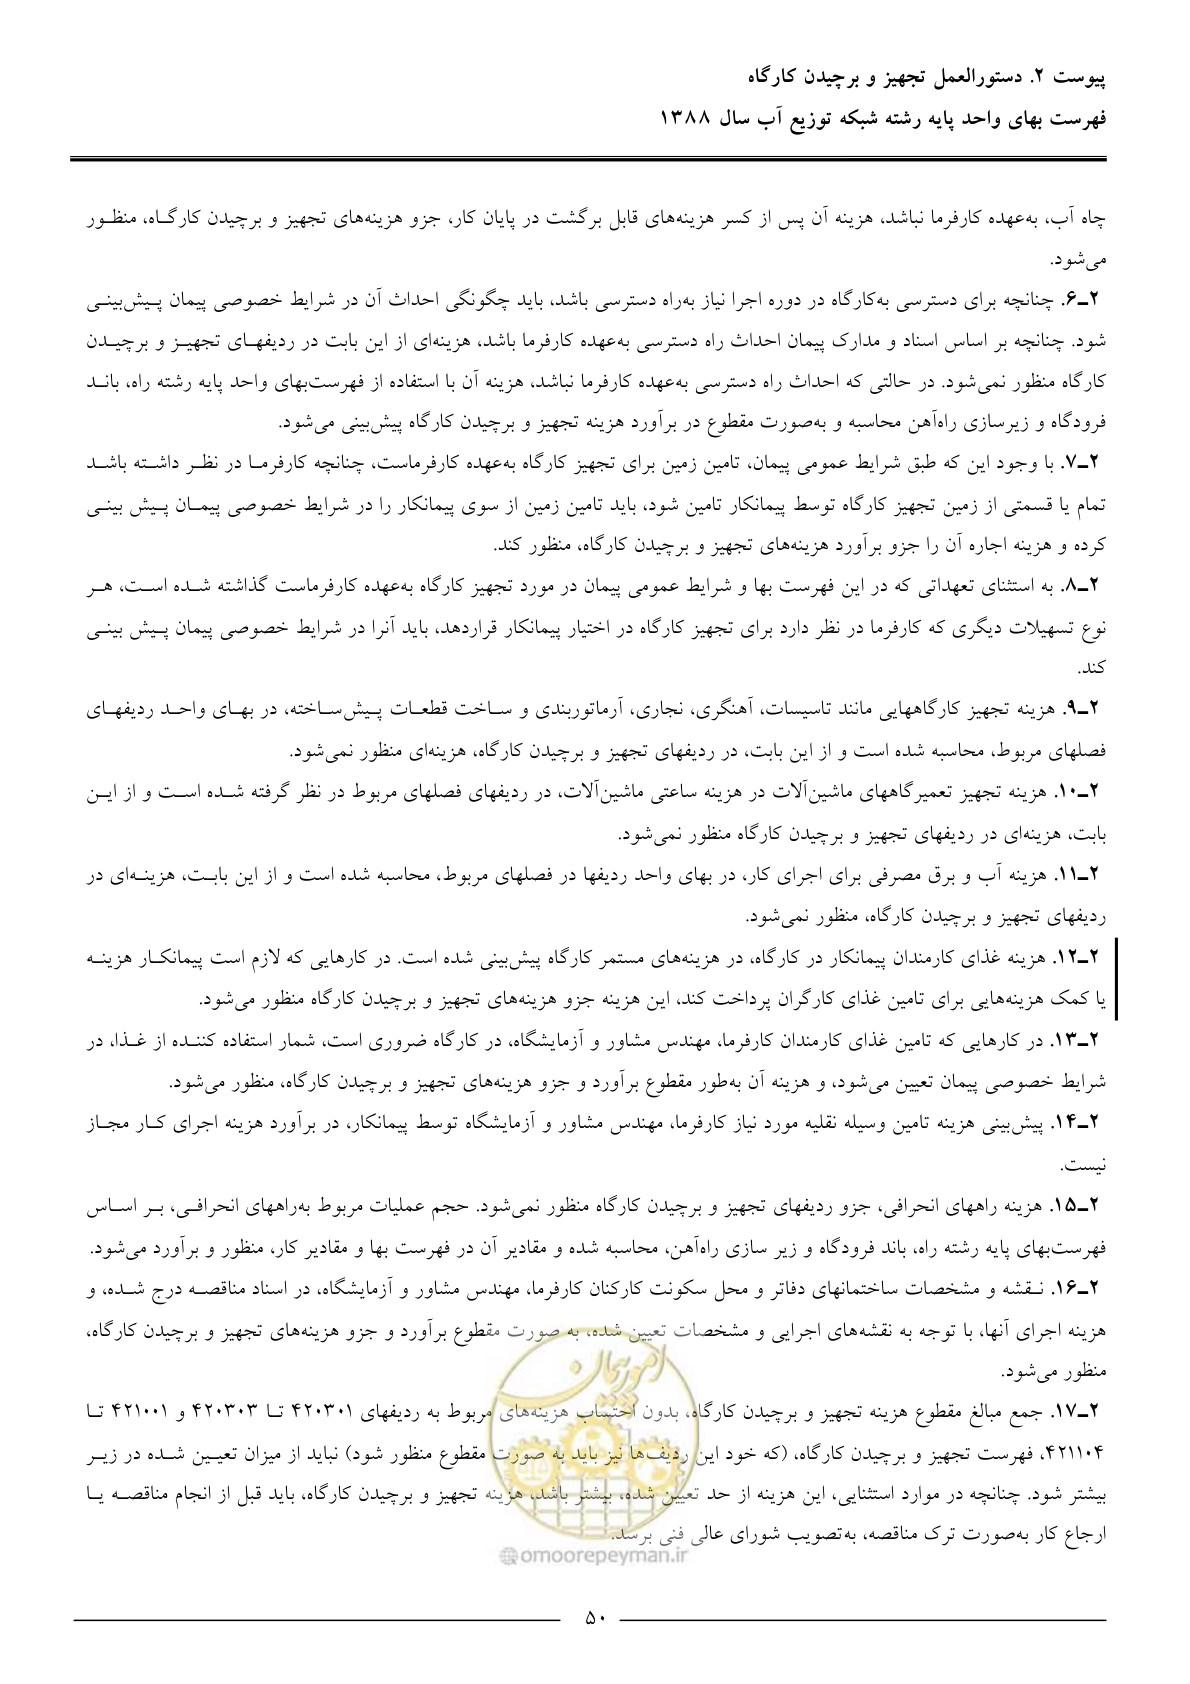 پیوست ۲. دستورالعمل تجهیز و برچیدن کارگاه
فهرست بهای واحد پایه رشته شبکه توزیع آب سال ۱۳۸۸
چاه آب، به‌عهده کارفرما نباشد، هزینه آن پس از کسر هزینه‌های قابل برگشت در پایان کار، جزو هزینه‌های تجهیز و برچیدن کارگـاه، منظـور
می‌شود.
۲ـ۶. چنانچه برای دسترسی به‌کارگاه در دوره اجرا نیاز به‌راه دسترسی باشد، باید چگونگی احداث آن در شرایط خصوصی پیمان پـیش‌بینـی
شود. چنانچه بر اساس اسناد و مدارک پیمان احداث راه دسترسی به‌عهده کارفرما باشد، هزینه‌ای از این بابت در ردیفهـای تجهیـز و برچیـدن
کارگاه منظور نمی‌شود. در حالتی که احداث راه دسترسی به‌عهده کارفرما نباشد، هزینه آن با استفاده از فهرست‌بهای واحد پایه رشته راه، بانـد
فرودگاه و زیرسازی راه‌آهن محاسبه و به‌صورت مقطوع در برآورد هزینه تجهیز و برچیدن کارگاه پیش‌بینی می‌شود.
۲ـ۷. با وجود این که طبق شرایط عمومی پیمان، تامین زمین برای تجهیز کارگاه به‌عهده کارفرماست، چنانچه کارفرمـا در نظـر داشـته باشـد
تمام یا قسمتی از زمین تجهیز کارگاه توسط پیمانکار تامین شود، باید تامین زمین از سوی پیمانکار را در شرایط خصوصی پیمـان پـیش بینـی
کرده و هزینه اجاره آن را جزو برآورد هزینه‌های تجهیز و برچیدن کارگاه، منظور کند.
۲ـ۸. به استثنای تعهداتی که در این فهرست بها و شرایط عمومی پیمان در مورد تجهیز کارگاه به‌عهده کارفرماست گذاشته شـده اسـت، هـر
نوع تسهیلات دیگری که کارفرما در نظر دارد برای تجهیز کارگاه در اختیار پیمانکار قراردهد، باید آنرا در شرایط خصوصی پیمان پـیش بینـی
کند.
۲ـ۹. هزینه تجهیز کارگاههایی مانند تاسیسات، آهنگری، نجاری، آرماتوربندی و سـاخت قطعـات پـیش‌سـاخته، در بهـای واحـد ردیفهـای
فصلهای مربوط، محاسبه شده است و از این بابت، در ردیفهای تجهیز و برچیدن کارگاه، هزینه‌ای منظور نمی‌شود.
۲ـ۱۰. هزینه تجهیز تعمیرگاههای ماشین‌آلات در هزینه ساعتی ماشین‌آلات، در ردیفهای فصلهای مربوط در نظر گرفته شـده اسـت و از ایـن
بابت، هزینه‌ای در ردیفهای تجهیز و برچیدن کارگاه منظور نمی‌شود.
۲ـ۱۱. هزینه آب و برق مصرفی برای اجرای کار، در بهای واحد ردیفها در فصلهای مربوط، محاسبه شده است و از این بابـت، هزینـه‌ای در
ردیفهای تجهیز و برچیدن کارگاه، منظور نمی‌شود.
۲ـ۱۲. هزینه غذای کارمندان پیمانکار در کارگاه، در هزینه‌های مستمر کارگاه پیش‌بینی شده است. در کارهایی که لازم است پیمانکـار هزینـه
یا کمک هزینه‌هایی برای تامین غذای کارگران پرداخت کند، این هزینه جزو هزینه‌های تجهیز و برچیدن کارگاه منظور می‌شود.
۲ـ۱۳. در کارهایی که تامین غذای کارمندان کارفرما، مهندس مشاور و آزمایشگاه، در کارگاه ضروری است، شمار استفاده کننـده از غـذا، در
شرایط خصوصی پیمان تعیین می‌شود، و هزینه آن به‌طور مقطوع برآورد و جزو هزینه‌های تجهیز و برچیدن کارگاه، منظور می‌شود.
۲ـ۱۴. پیش‌بینی هزینه تامین وسیله نقلیه مورد نیاز کارفرما، مهندس مشاور و آزمایشگاه توسط پیمانکار، در برآورد هزینه اجرای کـار مجـاز
نیست.
۲ـ۱۵. هزینه راههای انحرافی، جزو ردیفهای تجهیز و برچیدن کارگاه منظور نمی‌شود. حجم عملیات مربوط به‌راههای انحرافـی، بـر اسـاس
فهرست‌بهای پایه رشته راه، باند فرودگاه و زیر سازی راه‌آهن، محاسبه شده و مقادیر آن در فهرست بها و مقادیر کار، منظور و برآورد می‌شود.
۲ـ۱۶. نـقشه و مشخصات ساختمانهای دفاتر و محل سکونت کارکنان کارفرما، مهندس مشاور و آزمایشگاه، در اسناد مناقصـه درج شـده، و
هزینه اجرای آنها، با توجه به نقشه‌های اجرایی و مشخصات تعیین شده، به صورت مقطوع برآورد و جزو هزینه‌های تجهیز و برچیدن کارگاه،
منظور می‌شود.
۲ـ۱۷. جمع مبالغ مقطوع هزینه تجهیز و برچیدن کارگاه، بدون احتساب هزینه‌های مربوط به ردیفهای ۴۲۰۳۰۱ تـا ۴۲۰۳۰۳ و ۴۲۱۰۰۱ تـا
۴۲۱۱۰۴، فهرست تجهیز و برچیدن کارگاه، (که خود این ردیف‌ها نیز باید به صورت مقطوع منظور شود) نباید از میزان تعیـین شـده در زیـر
بیشتر شود. چنانچه در موارد استثنایی، این هزینه از حد تعیین شده، بیشتر باشد، هزینه تجهیز و برچیدن کارگاه، باید قبل از انجام مناقصـه یـا
ارجاع کار به‌صورت ترک مناقصه، به‌تصویب شورای عالی فنی برسد.
امور پیمان
@omoorepeyman.ir
۵۰